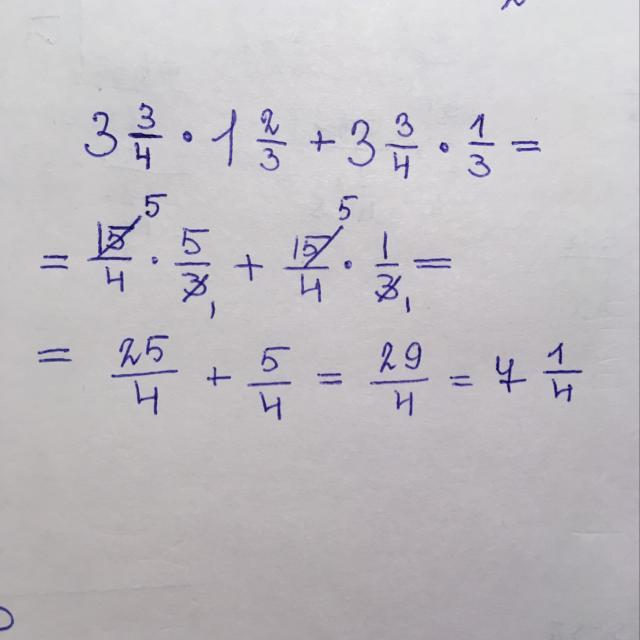 3 3/4 · 1 2/3 + 3 3/4 · 1/3 =
= 15 5/4 · 5/3 1 + 15 5/4 · 1/3 1 =
= 25/4 + 5/4 = 29/4 = 7 1/4